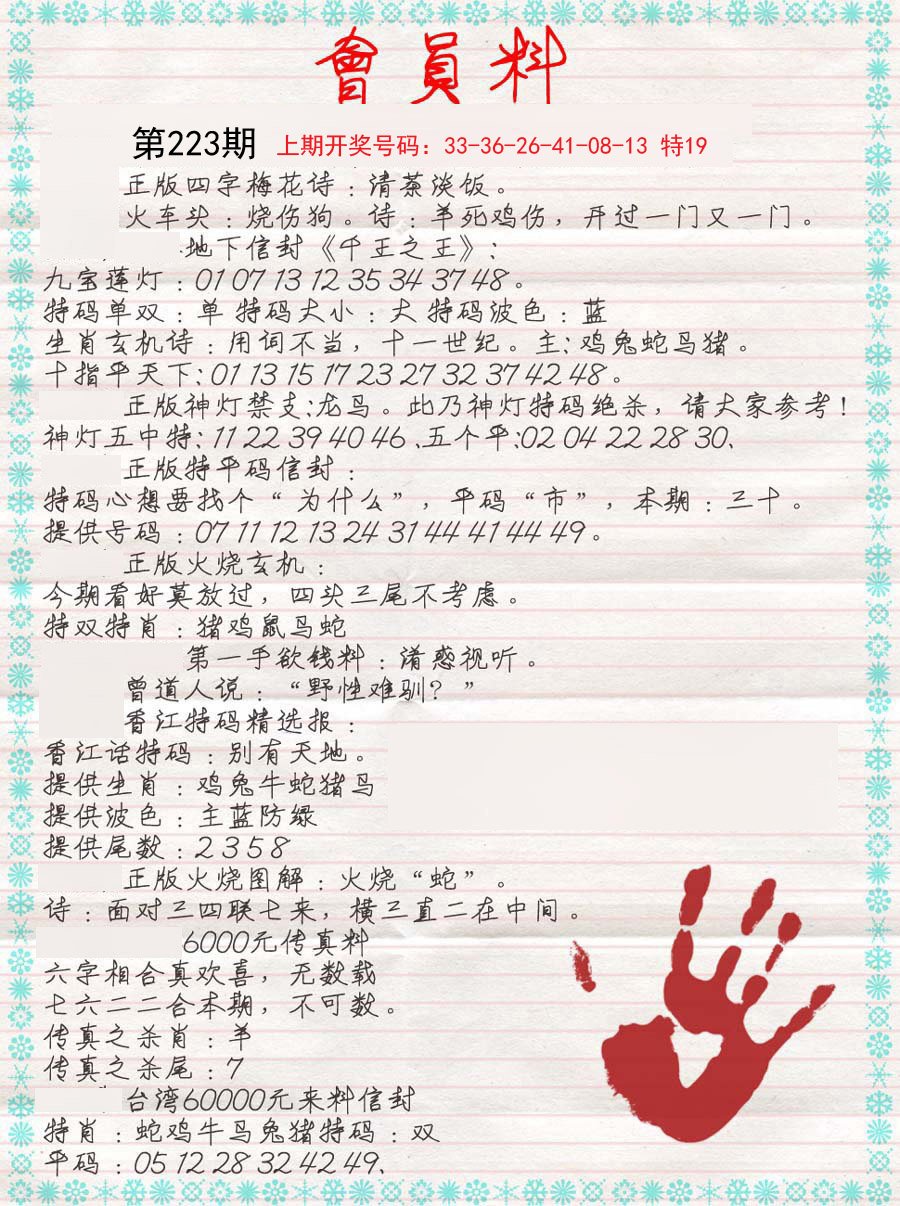 會員料
第223期 上期开奖号码：33-36-26-41-08-13 特19
正版四字梅花诗：清茶淡饭。
火车头：烧伤狗。诗：羊死鸡伤，开过一门又一门。
地下信封《千王之王》：
九宝莲灯：01 07 13 12 35 34 37 48。
特码单双：单 特码大小：大 特码波色：蓝
生肖玄机诗：用词不当，十一世纪。主：鸡兔蛇鸟猪。
十指平天下：01 13 15 17 23 27 32 37 42 48。
正版神灯禁支：龙鸟。此乃神灯特码绝杀，请大家参考！
神灯五中特：11 22 39 40 46、五个平：02 04 22 28 30、
正版特平码信封：
特码心想要找个“为什么”，平码“市”，本期：三十。
提供号码：07 11 12 13 24 31 44 41 44 49。
正版火烧玄机：
今期看好莫放过，四头三尾不考虑。
特双特肖：猪鸡鼠鸟蛇
第一手欲钱料：淆惑视听。
曾道人说：“野性难驯？”
香江特码精选报：
香江话特码：别有天地。
提供生肖：鸡兔牛蛇猪鸟
提供波色：主蓝防绿
提供尾数：2 3 5 8
正版火烧图解：火烧“蛇”。
诗：面对三四联七来，横三直二在中间。
6000元传真料
六字相合真欢喜，无数载
七六二二合本期，不可数。
传真之杀肖：羊
传真之杀尾：7
台湾60000元来料信封
特肖：蛇鸡牛鸟兔猪特码：双
平码：05 12 28 32 42 49、